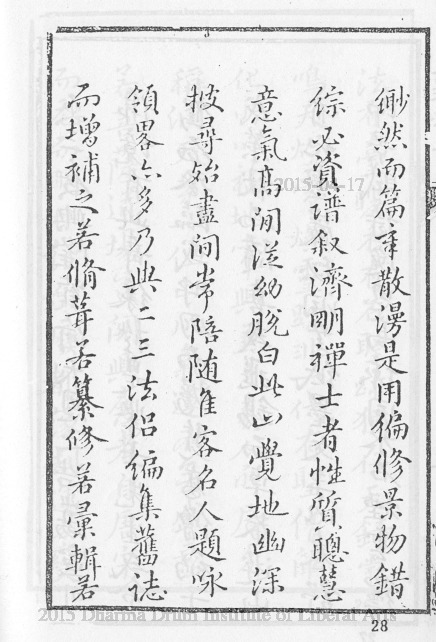 緲然而篇章散漫是用徧修景物錯
綜必資譜叙濟明禪士者性質聰慧
意氣高閒從幼脫白此山覺地幽深
披尋始盡間常陪随隹客名人題咏
領畧亦多乃與二三法侣編集舊誌
而增補之若脩葺若纂修若彙輯若
2015-04-17
28
2015 Dharma Drum Institute of Liberal Arts